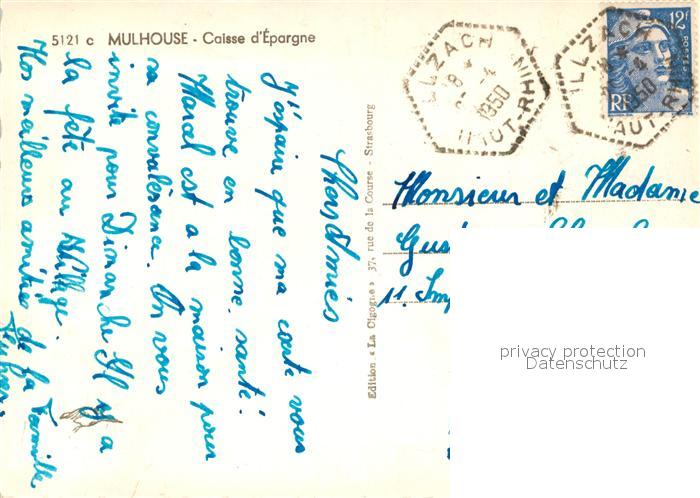 5121 c MULHOUSE - Caisse d'Épargne
Chers Amies
J'espair que ma carte vous
trouve en bonne santé.
Marcel est a la maison pour
sa convalésance. On vous
invite pour Dimanche Il y a
la fête au Village.
Nos meilleurs amitiés de la Famille
Edition « La Cigogne » 37, rue de la Course - Strasbourg
ILLZACH
18 * -4
1950
HAUT-RHIN
ILLZACH
18 * -4
1950
HAUT-RHIN
12F
POSTES
RF
Monsieur et Madame
Gus
11. Imp
privacy protection
Datenschutz